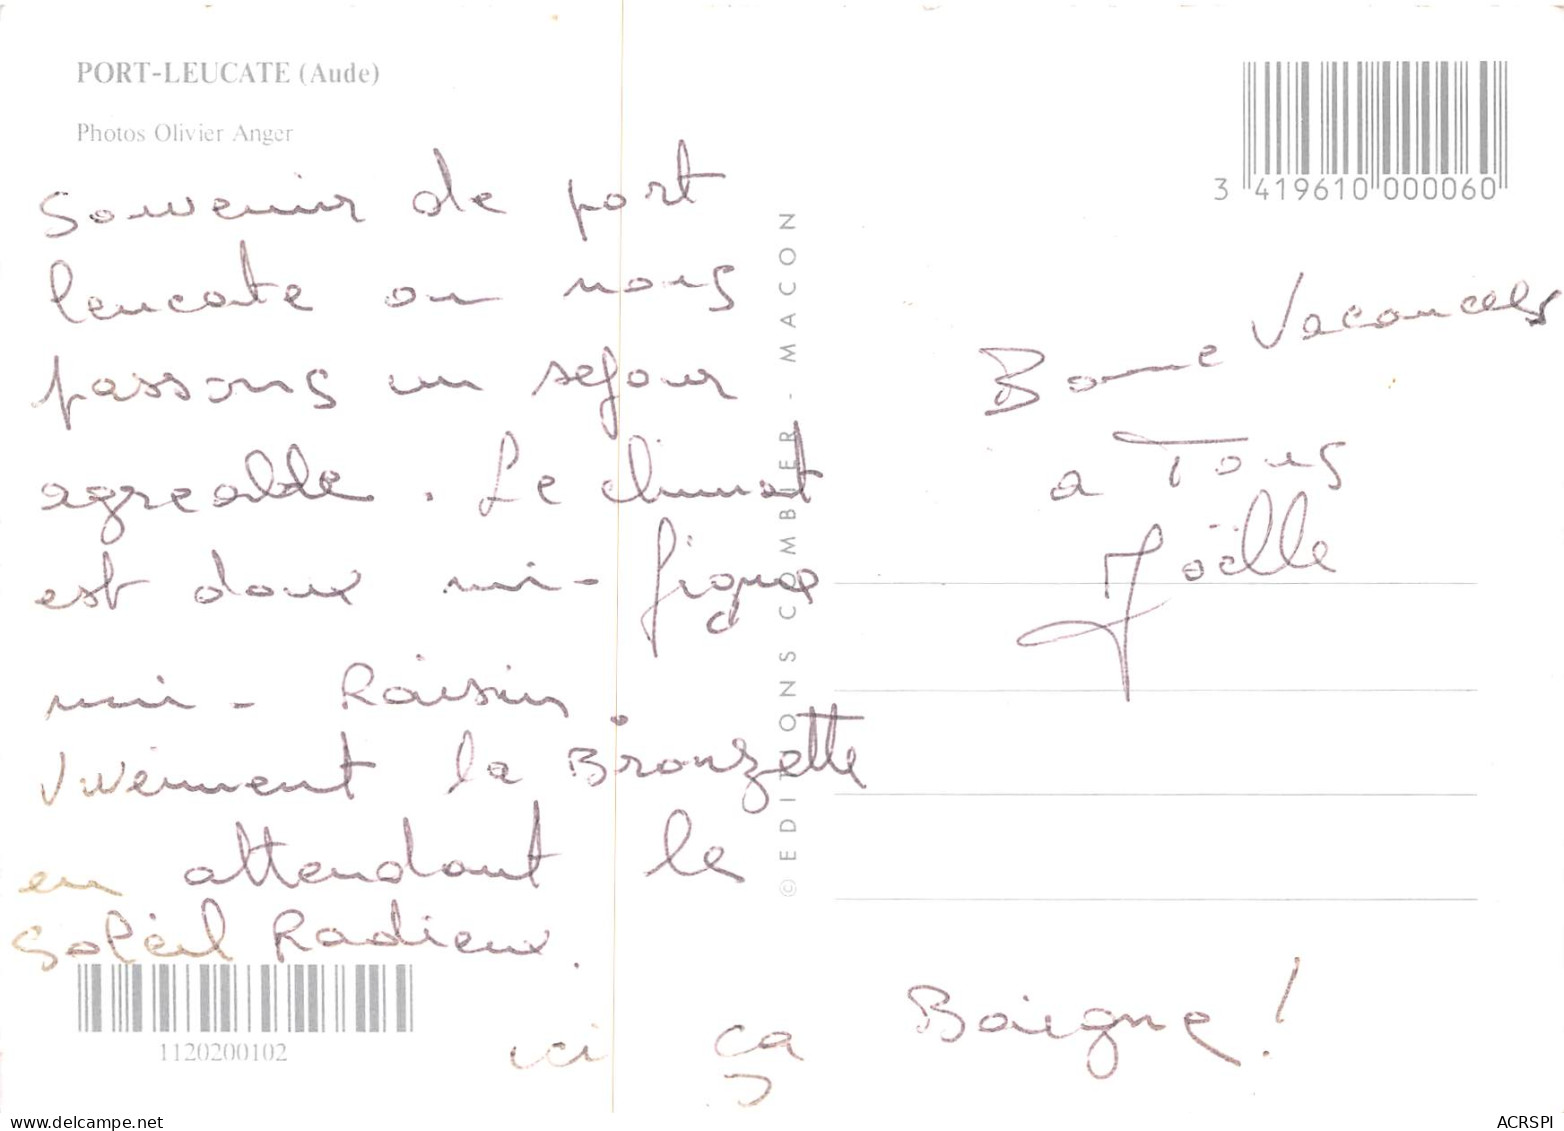 PORT-LEUCATE (Aude)
Photos Olivier Anger
Souvenir de port
leucate ou nous
passons un sejour
agreable. Le climat
est doux mi-figue
mi-Raisin.
Vivement la Bronzette
en attendant le
Soleil Radieux.
1120200102
© EDITIONS COMBIER - MACON
3 419610 000060
Bonne Vacances
a Tous
Joëlle
ici ça Baigne !
www.delcampe.net
ACRSPI